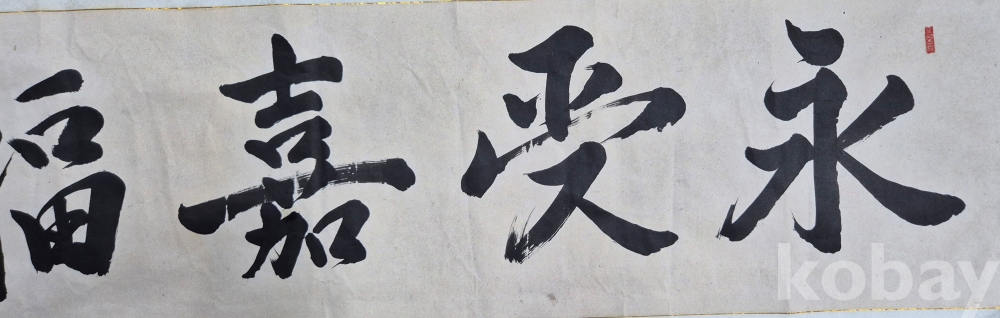 永受嘉福
kobay